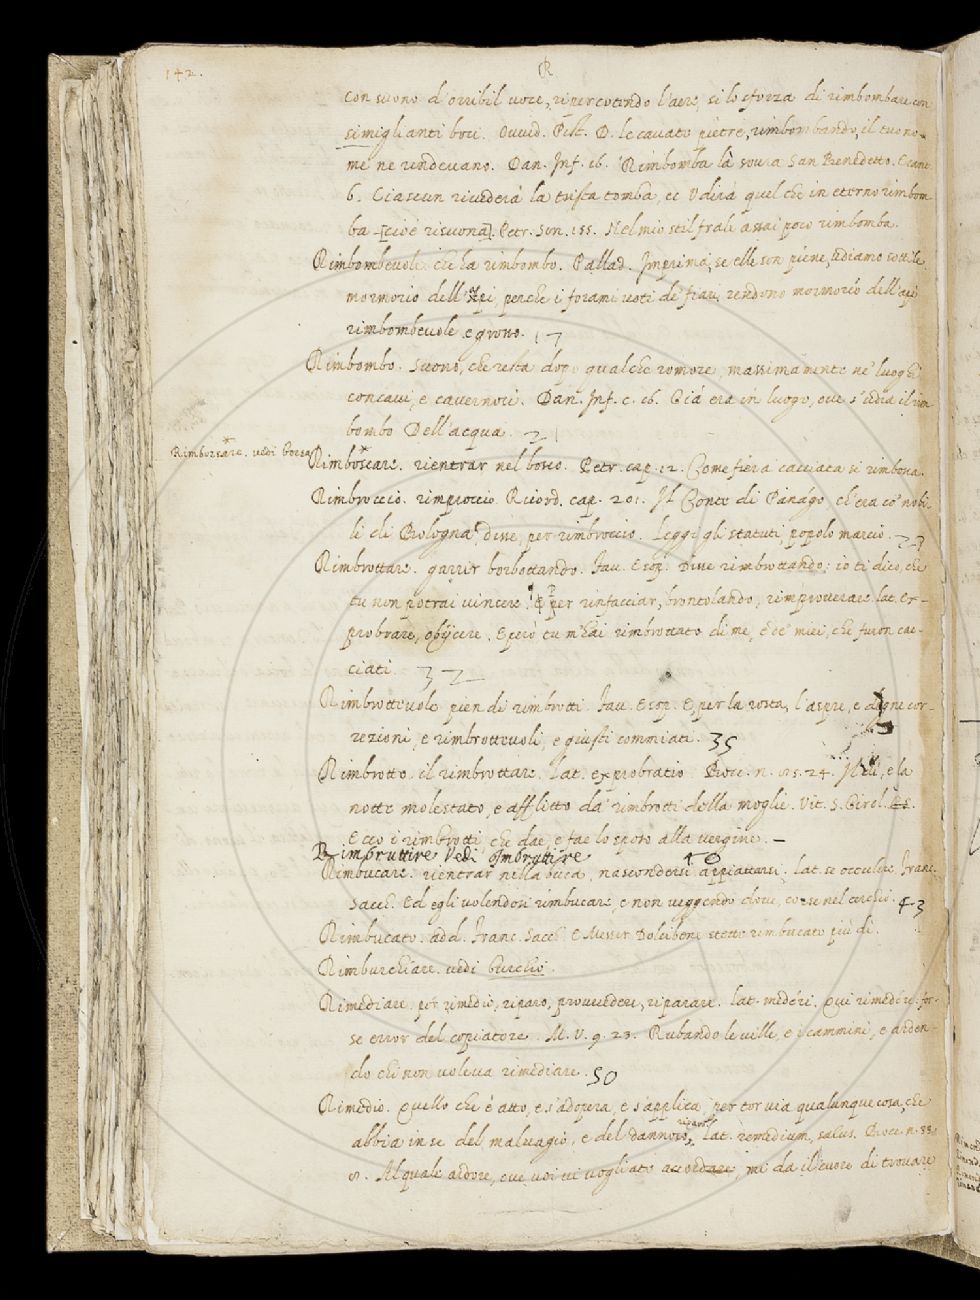 142.
R
con suono d'orribil voce, ripercotendo l'aere, si sforza di rimbombare con
simiglianti boci. Ovvid. Pist. D. le cavate pietre, rimbombando, il tuo no-
me ne rendevano. Dan. Inf. 16. Rimbomba là sovra San Benedetto. E cant.
6. Ciascun rivederà la trista tomba, ec Udirà quel che in eterno rimbom-
ba [cioè risuona]. Petr. Son. 155. Nel mio stil frale assai poco rimbomba.
Rimbombevole che ha rimbombo. Pallad. Imprima, se elle son piene, udiamo sottile
mormorio dell'Api, perche i forami voti de' fiari, rendono mormorio dell'api
rimbombevole e grosso. 17
Rimbombo. Suono, che resta dopo qualche romore, massimamente ne' luoghi
concavi, e cavernosi. Dan. Inf. c. 16. Già era in luogo, ove s'udia il rim-
bombo Dell'acqua. 21
Rimborsare. vedi borsa
Rimboscare. rientrar nel bosco. Petr. cap. 12. Come fiera cacciata si rimbosca.
Rimbroccio. rimproccio. Ricord. cap. 201. Il Conte di Panago ch'era co' nobi-
li di Bologna, disse, per rimbroccio. Leggi gli statuti, popolo marcio. 27
Rimbrottare. garrir borbottando. Fav. Esop. Disse rimbrottando: io ti dico, che
tu non potrai vincere. per rinfacciar, brontolando, rimproverare lat. ex-
probrare, obijcere. E però tu m'hai rimbrottato di me, e de' miei, che furon cac-
ciati. 32
Rimbrottevole pien di rimbrotti. Fav. Esop. E, per la rosta, l'aspre, e degne cor-
rezioni, e rimbrottevoli, e giusti commiati. 35
Rimbrotto. il rimbrottare. Lat. exprobratio. Bocc. n. 85. 24. Il dì, e la
notte molestato, e afflitto da' rimbrotti della moglie. Vit. S. Girol.
Ecco i rimbrotti, che dae, e fae lo sposo alla vergine.
Rimbruttire Vedi Imbruttire 40
Rimbucare. rientrar nella buca, nascondersi appiattarsi. lat. se occulere. Franc.
Sacch. Ed egli volendosi rimbucare, e non veggendo dove, corse nel cerchio. 43
Rimbucato. add. Franc. Sacch. E Messer Dolcibene stette rimbucato più dì.
Rimburchiare. vedi burchio.
Rimediare. por rimedio, riparo, provvedere, riparare. lat. mederi. Qui rimedire. for-
se error del copiatore. M. V. 9. 23. Rubando le ville, e i cammini, e arden-
do chi non voleva rimediare. 50
Rimedio. Quello che è atto, e s'adopera, e s'applica, per tor via qualunque cosa, che
abbia in se del malvagio, e del dannoso, riparo lat. remedium, salus. Bocc. n. 33.
8. Al quale ardore, ove voi vi vogliate accordare, mi da il cuore di trovare